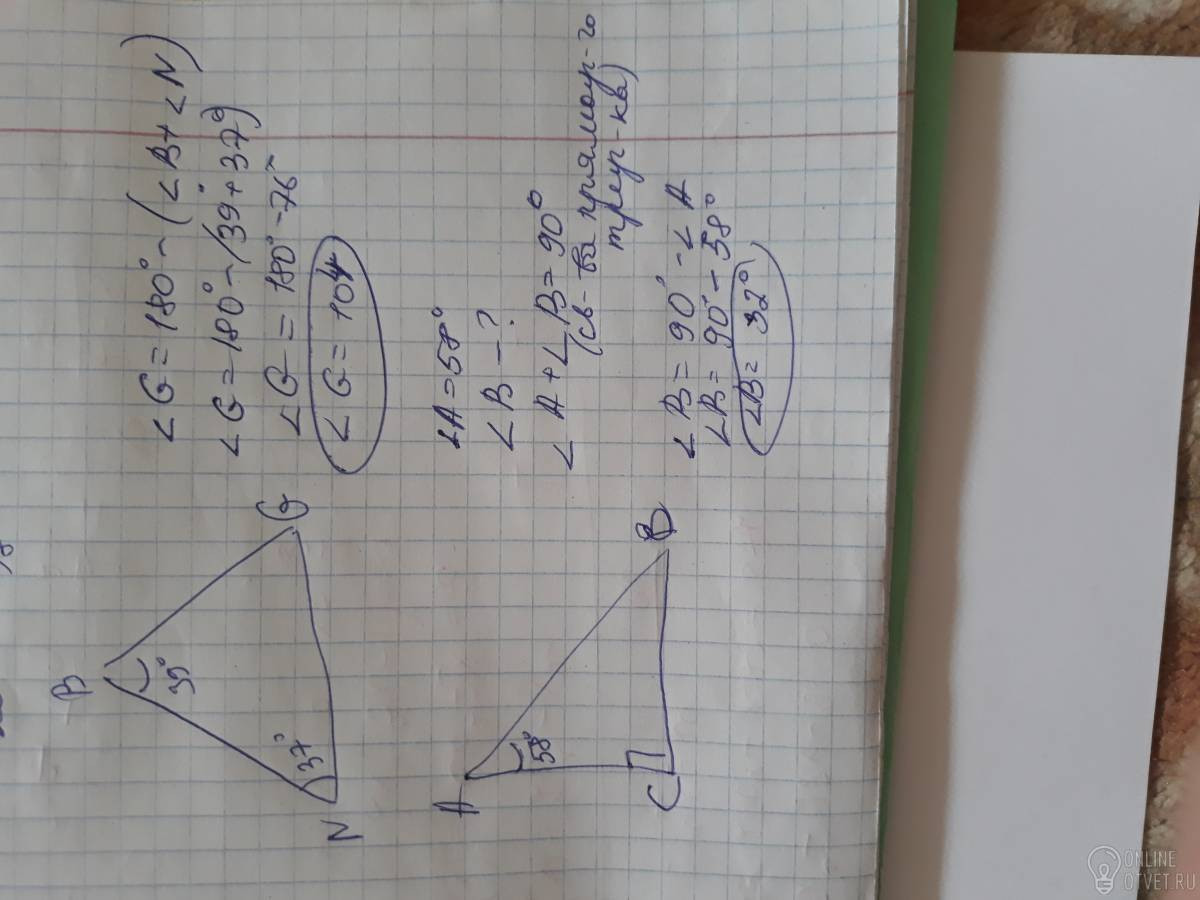 B
39°
37°
N
G
∠G = 180° - (∠B + ∠N)
∠G = 180° - (39° + 37°)
∠G = 180° - 76°
∠G = 104
A
58°
C
B
∠A = 58°
∠B - ?
∠A + ∠B = 90°
(св-ва прямоуг-го
треуг-ка)
∠B = 90° - ∠A
∠B = 90° - 58°
∠B = 32°
ONLINE
OTVET.RU